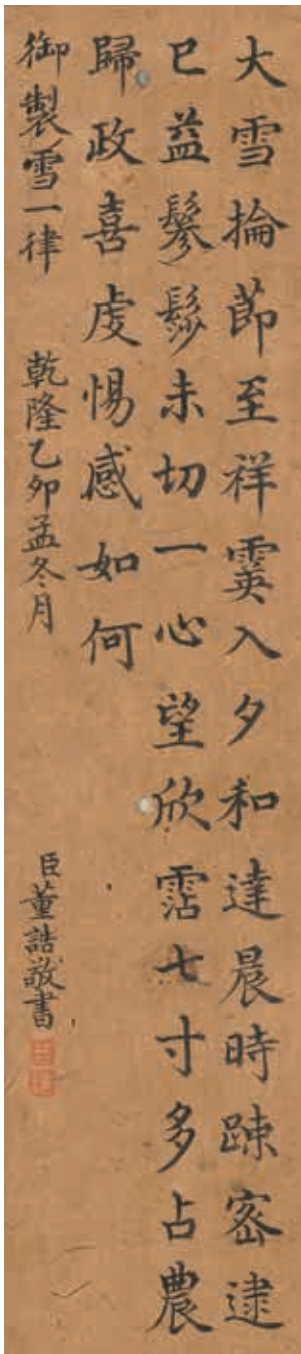 大雪掄節至祥霙入夕和達晨時踈密逮
巳益鬖髿未切一心望欣霑七寸多占農
歸政喜虔惕感如何
御製雪一律 乾隆乙卯孟冬月 臣董誥敬書